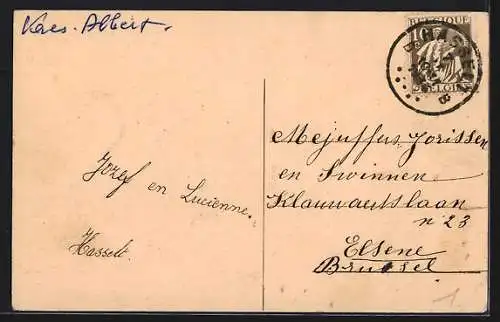 Kaes. Albert.
BELGIQUE
HASSELT
BELGIE
Jozef en Lucienne.
Hasselt.
Mejuffers Jorissen
en Swinnen
Klauwaertslaan
n 23
Elsene
Brussel
1